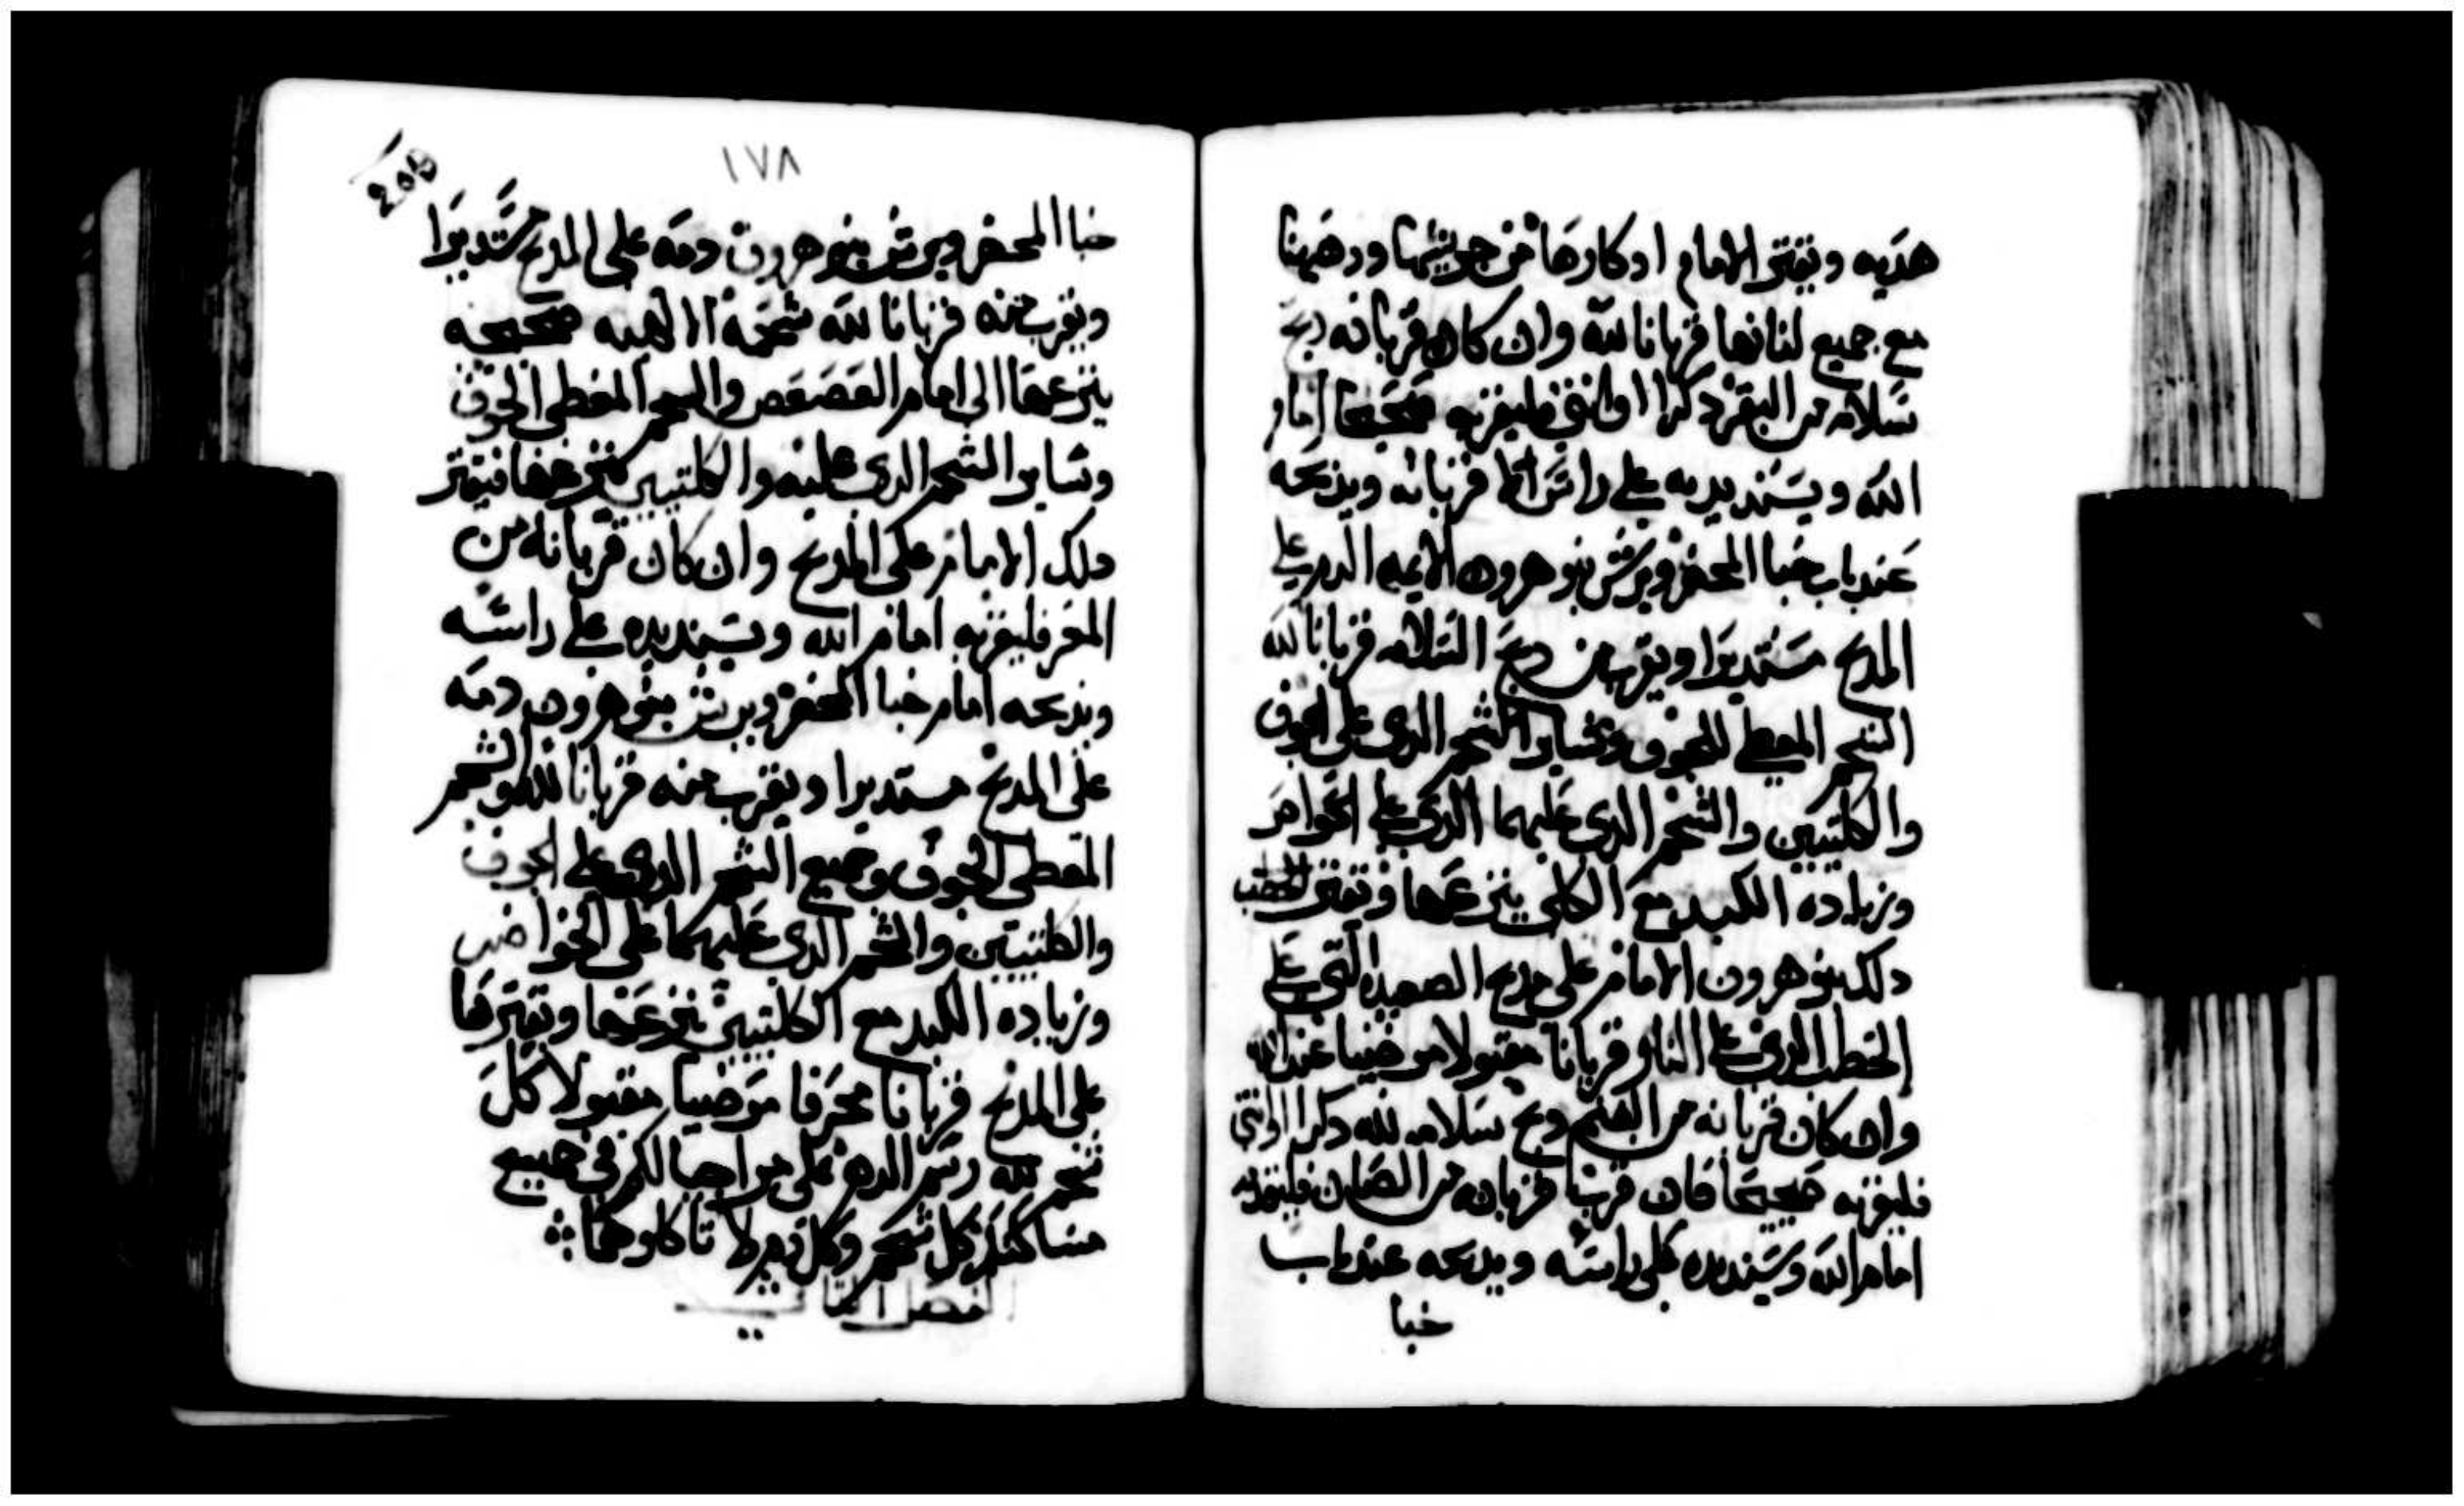 هديه ويقتر الامام ادكارها من جريشها ودهينها
مع جميع لبانها قربانا لله وان كان قربانه دبح
سلامه من البقر دكرا او انثى فليقربه صحيحا امام
الله ويسند يديه على راس قربانه ويذبحه
عند باب خبا المحضر ويرش بنو هرون الايمه الدم على
المدبح مستديرا ويقرب من دبح السلامه قربانا لله
الشحم المغطي للجوف وساير الشحم الدي على الجوف
والكليتين والشحم الدي عليهما الدي على الخواصر
وزياده الكبد مع الكلي ينزعها ويقتر
دلك بنو هرون الامام على مدبح الصعيده التي على
الحطب الدي على النار قربانا مقبولا مرضيا عند الله
وان كان قربانه من الغنم دبح سلامه لله دكرا او انثى
فليقربه صحيحا فان قربانه من الضان فليقربه
امام الله ويسند يده على راسه ويدبحه عند باب
خبا
١٧٨
خبا المحضر ويرش بنو هرون دمه على المدبح مستديرا
ويقرب منه قربانا لله شحمه الاليه صحيحه
ينزعها الى امام العصعص والشحم المغطى الجوف
وساير الشحم الدي عليه والكليتين ينزعها فيقتر
دلك الامام على المدبح وان كان قربانه من
المعز فليقربه امام الله ويسند يده على راسه
ويذبحه امام خبا المحضر ويرش بنو هرون دمه
على المدبح مستديرا ويقرب منه قربانا لله الشحم
المغطى الجوف وجميع الشحم الدي على الجوف
والكليتين والشحم الدي عليهما على الخواصر
وزياده الكبد مع الكليتين ينزعها ويقترها
على المدبح قربانا محرقا مرضيا مقبولا كل
شحم لله رسم الدهر على مر اجيالكم في جميع
مساكنكم كل شحم وكل دم لا تاكلوهما
الفصل